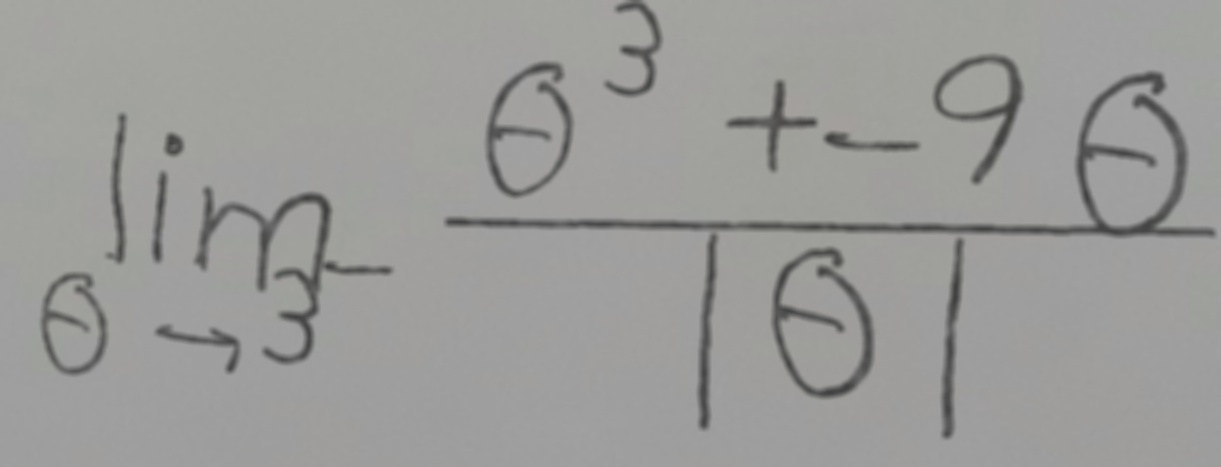 lim θ→3⁻ (θ³ + -9θ) / |θ|